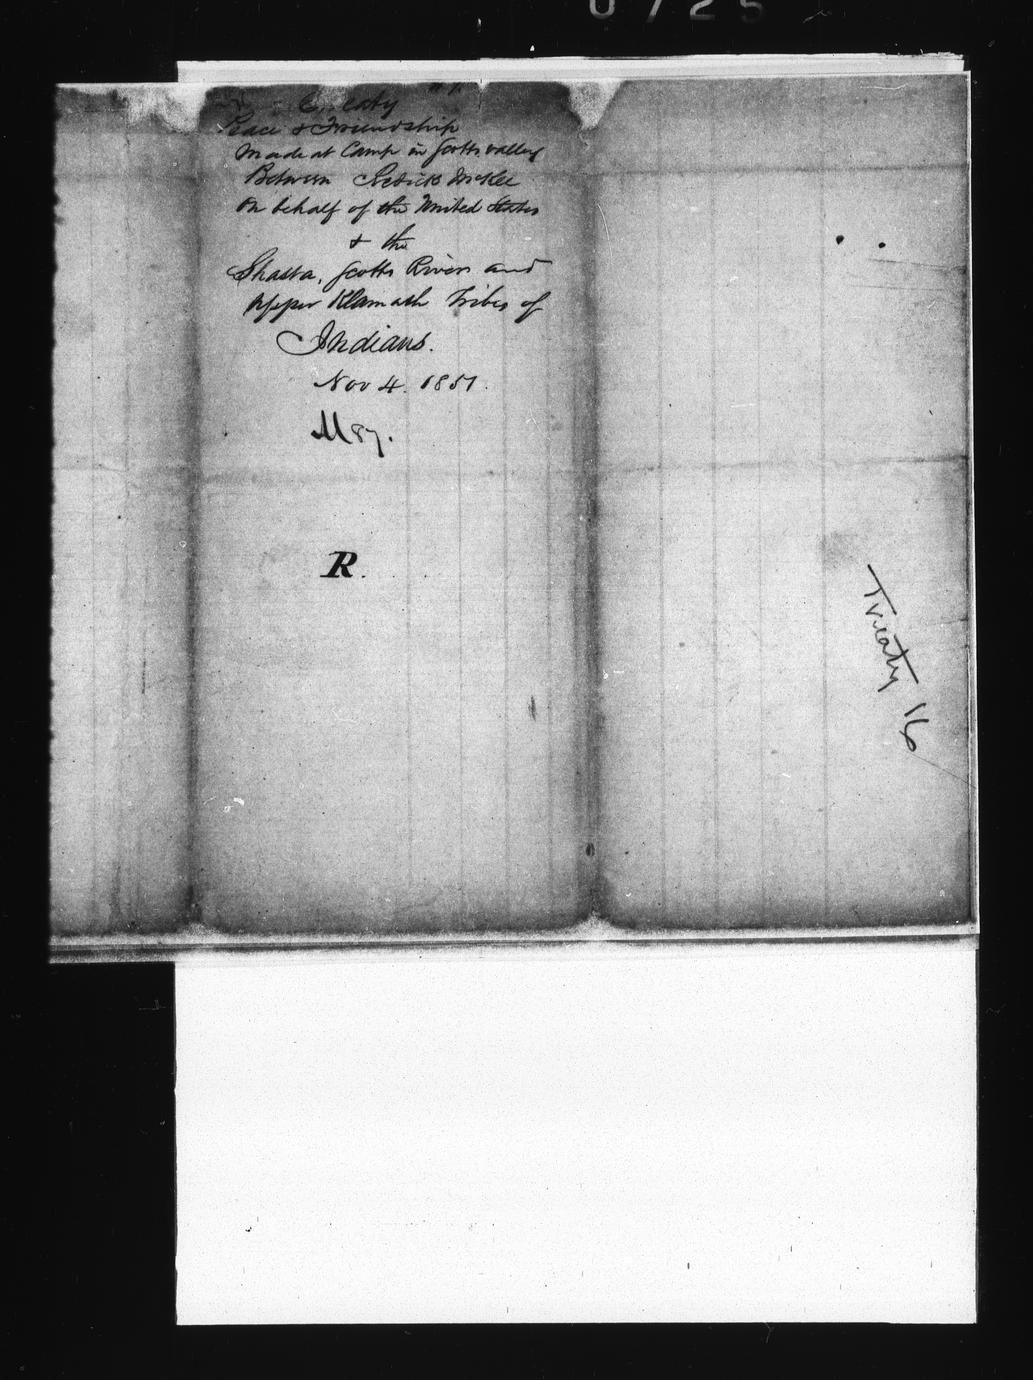 0725
Treaty
Peace & Friendship
Made at Camp in Scotts valley
Between Redick McKee
On behalf of the United States
& the
Shasta, Scotts River and
Upper Klamath Tribes of
Indians.
Nov 4. 1851.
R.
Treaty 16